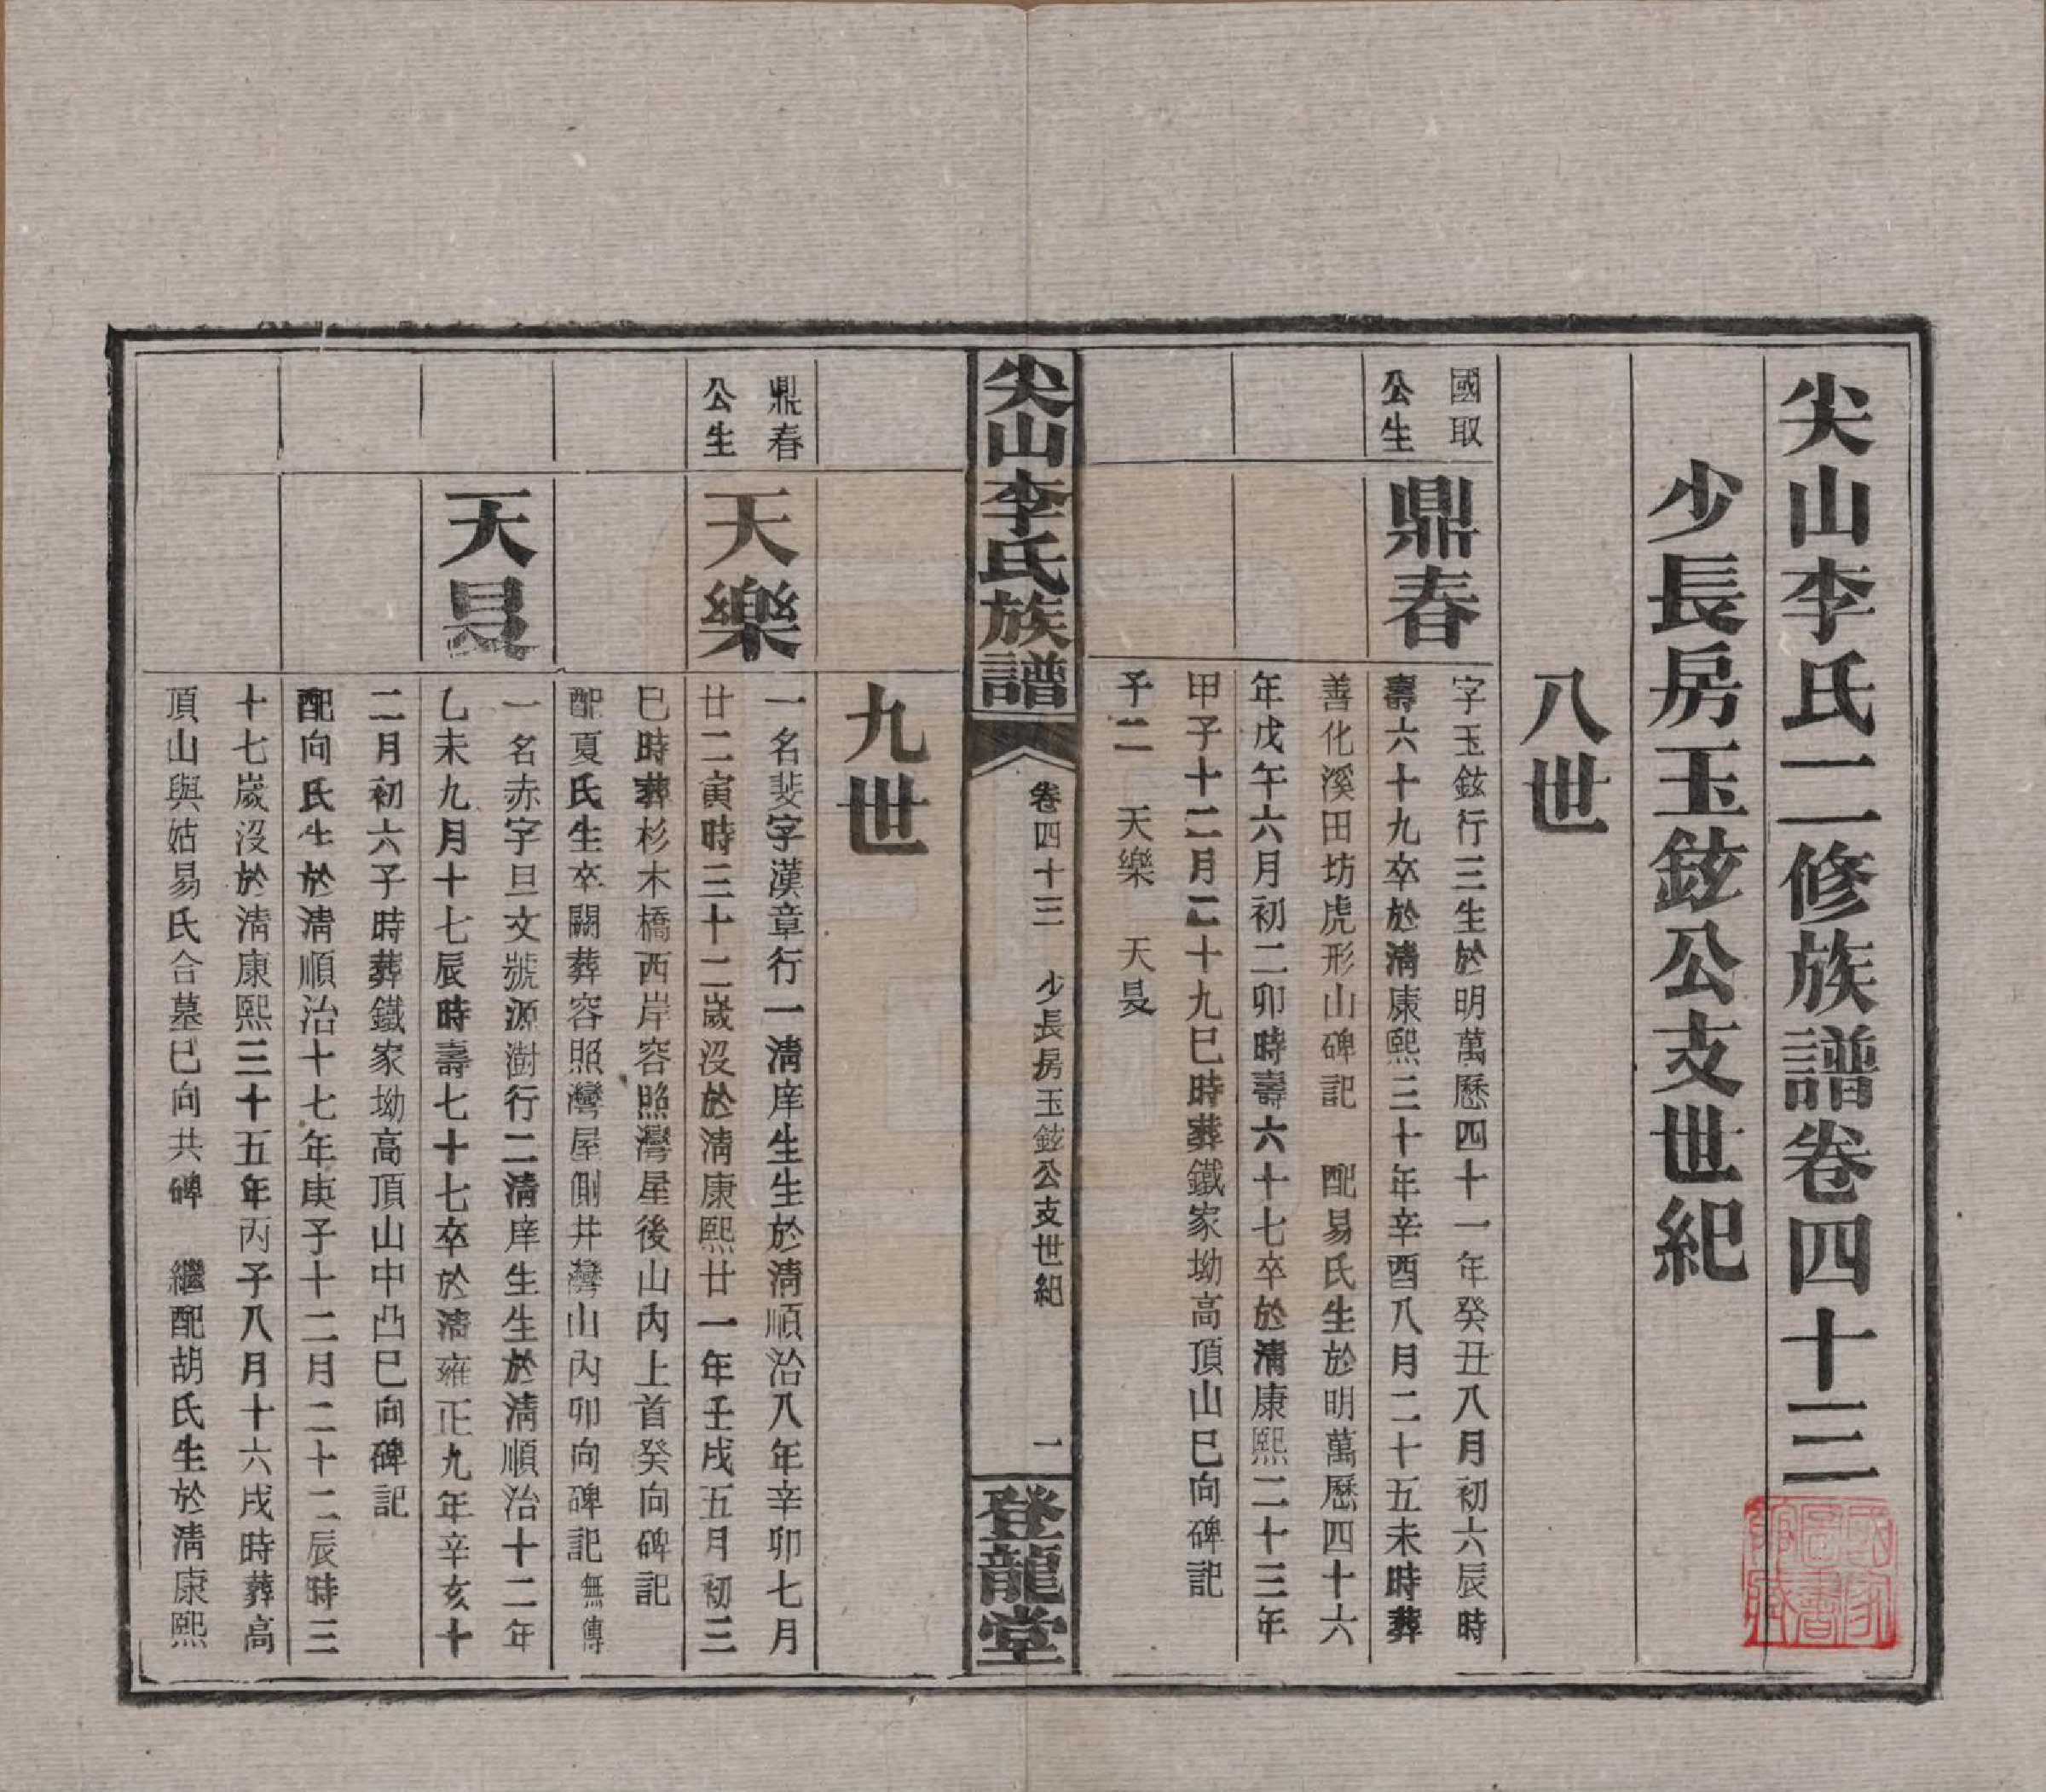 尖山李氏二修族譜卷四十三
少長房玉鉉公支世紀
八世
國取
公生
鼎春
字玉鉉行三生於明萬歷四十一年癸丑八月初六辰時
壽六十九卒於清康熙三十年辛酉八月二十五未時葬
善化溪田坊虎形山碑記 配易氏生於明萬歷四十六
年戊午六月初二卯時壽六十七卒於清康熙二十三年
甲子十二月二十九巳時葬鐵家坳高頂山巳向碑記
子二 天樂 天旻
尖山李氏族譜
卷四十三 少長房玉鉉公支世紀
一
登龍堂
九世
鼎春
公生
天樂
一名斐字漢章行一清庠生生於清順治八年辛卯七月
廿二寅時三十二歲沒於清康熙廿一年壬戌五月初三
巳時葬杉木橋西岸容照灣屋後山內上首癸向碑記
配夏氏生卒闕葬容照灣屋側井灣山內卯向碑記無傳
天旻
一名赤字旦文號源澍行二清庠生生於清順治十二年
乙未九月十七辰時壽七十七卒於清雍正九年辛亥十
二月初六子時葬鐵家坳高頂山中凸巳向碑記
配向氏生於清順治十七年庚子十二月二十二辰時三
十七歲沒於清康熙三十五年丙子八月十六戌時葬高
頂山與姑易氏合墓巳向共碑 繼配胡氏生於清康熙
國家
圖書
館藏